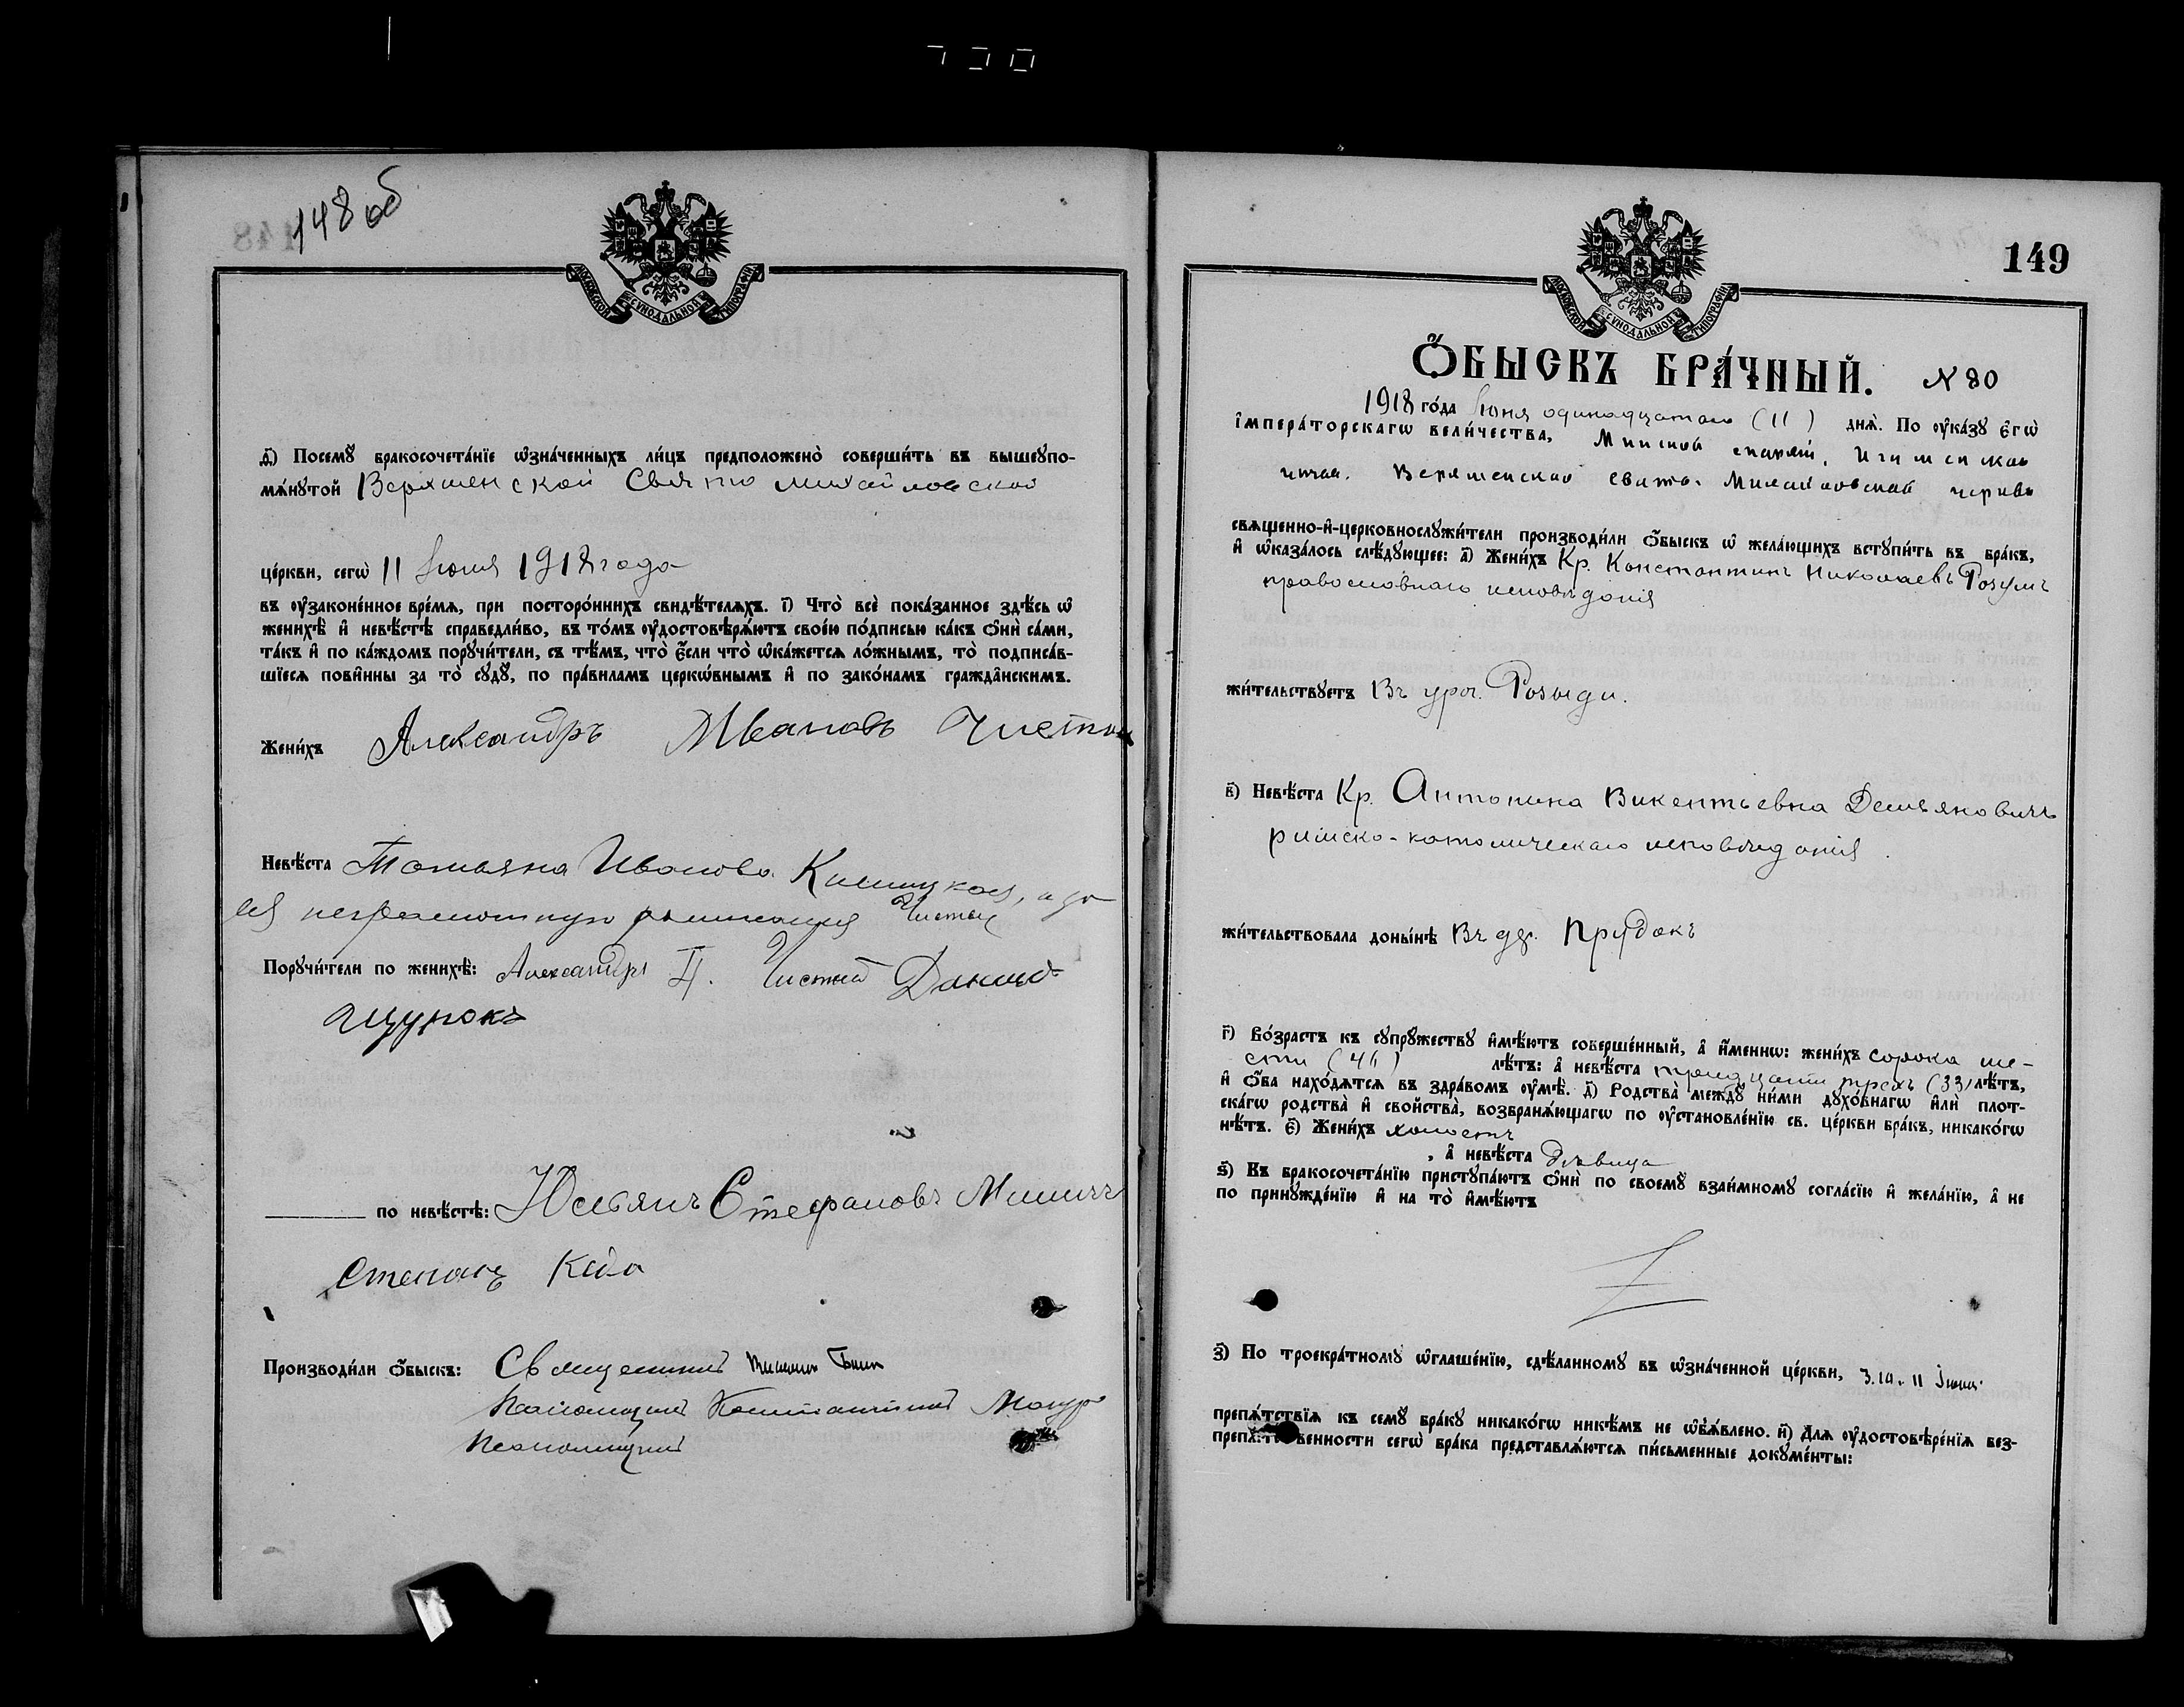 148 об
МОСКОВСКОЙ СУНОДАЛЬНОЙ ТИПОГРАФІИ
д҃і) Посемꙋ̀ бракосочета́нїе ѡ҆зна́ченныхъ ли́цъ предположено̀ соверши́ть въ вышеꙋпо-
мѧ́нꙋтой Верхменской Свято Михайловской
це́ркви, сегѡ̀ 11 Іюня 1918 года
въ ᲂу҆законе́нное вре́мѧ, при посторо́ннихъ свидѣ́телѧхъ. і҃) Что̀ всѐ пока́занное здѣ́сь ѡ҆
женихѣ̀ и҆ невѣ́стѣ справедли́во, въ то́мъ ᲂу҆достовѣрѧ́ютъ свое́ю по́дписью ка́къ ѻ҆нѝ са́ми,
та́къ и҆ по ка́ждомъ порꙋчи́тели, съ тѣ́мъ, что̀ є҆́сли что̀ ѡ҆ка́жетсѧ ло́жнымъ, то̀ подписа́в-
шїесѧ пови́нны за то̀ сꙋдꙋ̀, по пра́виламъ церкѡ́внымъ и҆ по зако́намъ гражда́нскимъ.
Жени́хъ Александръ Ивановъ Чистый
Невѣ́ста Татьяна Иванова
Порꙋчи́тели по женихѣ̀: Александръ Чистый Данило
Щурокъ
по невѣ́стѣ: Юльянъ Стефановъ
Степанъ
Производи́ли ѻ҆́быскъ: Священникъ
Псаломщикъ Константинъ
Псаломщикъ
149
МОСКОВСКОЙ СУНОДАЛЬНОЙ ТИПОГРАФІИ
Ѻ҆́БЫСКЪ БРА́ЧНЫЙ. N 80
1918 го́да Іюня одинадцатаго (11) днѧ̀. По ᲂу҆ка́зꙋ є҆гѡ̀
і҆мпера́торскагѡ вели́чества, Минской епархіи, Игуменскаго
уѣзда. Верхменской Свято-Михайловской церкви
свѧще́нно-и҆-церковнослꙋжи́тели производи́ли ѻ҆́быскъ ѡ҆ жела́ющихъ встꙋпи́ть въ бра́къ,
и҆ ѡ҆каза́лось слѣ́дꙋющее: а҃) Жени́хъ Кр. Константинъ Николаевъ Розумъ
православнаго исповѣданія
жи́тельствꙋетъ Въ уроч.
в҃) Невѣ́ста Кр. Антонина Викентьевна Демьяновичъ
римско-католическаго исповѣданія
жи́тельствовала доны́нѣ Въ дер. Прудокъ
г҃) Во́зрастъ къ сꙋпрꙋ́жествꙋ и҆мѣ́ютъ соверше́нный, а҆ и҆́меннѡ: жени́хъ сорока ше-
сти (46) лѣ́тъ: а҆ невѣ́ста тридцати трехъ (33) лѣ́тъ,
и҆ ѻ҆́ба нахо́дѧтсѧ въ здра́вомъ ᲂу҆мѣ̀. д҃) Родства̀ междꙋ̀ ни́ми дꙋхо́внагѡ и҆лѝ плот-
ска́гѡ родства̀ и҆ свойства̀, возбранѧ́ющагѡ по ᲂу҆становле́нїю св. це́ркви бра́къ, никако́гѡ
нѣ́тъ. є҃) Жени́хъ холостъ
, а҆ невѣ́ста дѣвица
ѕ҃) Къ бракосочета́нїю пристꙋпа́ютъ ѻ҆нѝ по своемꙋ̀ взаи́мномꙋ согла́сїю и҆ жела́нїю, а҆ не
по принꙋжде́нїю и҆ на то̀ и҆мѣ́ютъ
з҃) По троекра́тномꙋ ѡ҆глаше́нїю, сдѣ́ланномꙋ въ ѡ҆зна́ченной це́ркви, 3. 10. 11 Іюня
препѧ́тствїѧ къ семꙋ̀ бра́кꙋ никако́гѡ никѣ́мъ не ѡ҆б̾ѧ́влено. и҃) Длѧ ᲂу҆достовѣре́нїѧ без-
препѧ́тственности сегѡ̀ бра́ка представлѧ́ютсѧ пи́сьменные докꙋме́нты: